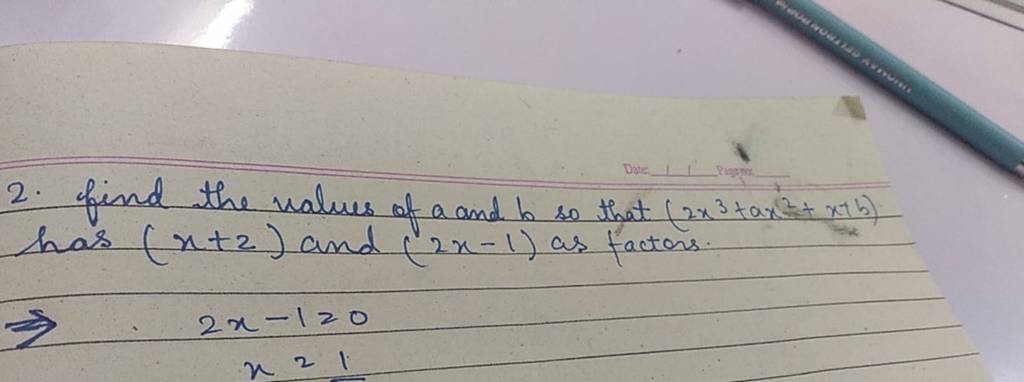 Date: / / Page no:
2. find the values of a and b so that (2x³+ax²+x+b)
has (x+2) and (2x-1) as factors.
⇒ 2x-1=0
x = 1